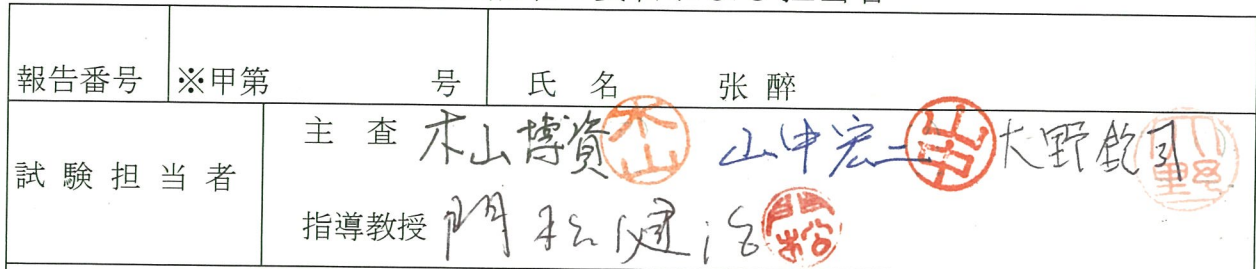 報告番号 ※甲第 号 氏 名 张 醉
試 験 担 当 者
主 査 木山博資 木山 山中宏二 山中 大野欽司 大野
指導教授 門松健治 門松